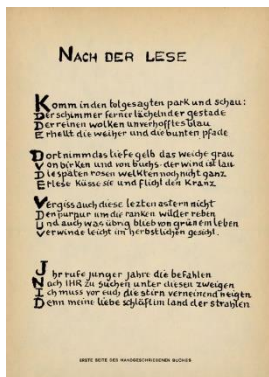 NACH DER LESE
Komm in den totgesagten park und schau:
Der schimmer ferner lächelnder gestade
Der reinen wolken unverhofftes blau
Erhellt die weiher und die bunten pfade
Dort nimm das tiefe gelb das weiche grau
Von birken und von buchs · der wind ist lau
Die späten rosen welkten noch nicht ganz
Erlese küsse sie und flicht den kranz
Vergiss auch diese lezten astern nicht
Den purpur um die ranken wilder reben
Und auch was übrig blieb von grünem leben
Verwinde leicht im herbstlichen gesicht.
Ihr rufe junger jahre die befahlen
Nach IHR zu suchen unter diesen zweigen
Ich muss vor euch die stirn verneinend neigen
Denn meine liebe schläft im land der strahlen
ERSTE SEITE DES HANDGESCHRIEBENEN BUCHES